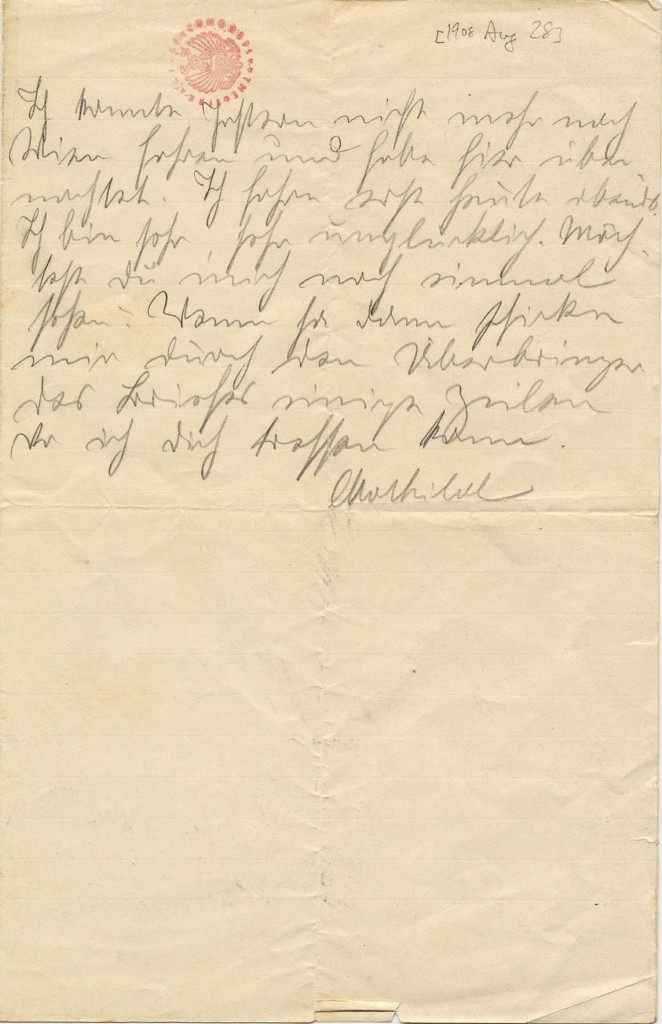 [1908 Aug 28]
Ich konnte gestern nicht mehr nach
Wien fahren und habe hier über
nachtet. Ich fahre erst heute abends.
Ich bin sehr, sehr unglücklich. Möch
test du mich noch einmal
sehen? Wenn ja dann schicke
mir durch den Überbringer
des Briefes einige Zeilen
wo ich dich treffen kann.
Mathilde